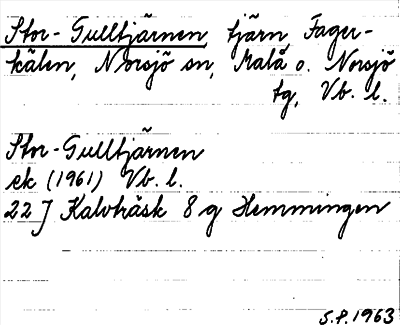 Stor-Gulltjärnen, tjärn Fager-
kälen, Norsjö sn, Malå o. Norsjö
tg, Vb. l.
Stor-Gulltjärnen
ek (1961) Vb. l.
22 J Kalvträsk 8 g Hemmingen
S.P. 1963